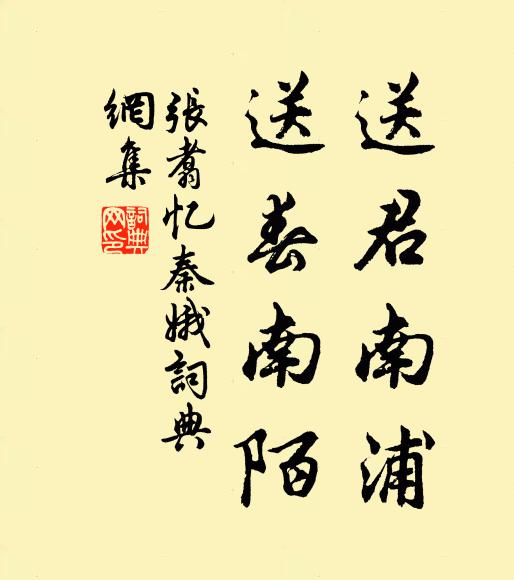 送君南浦
送春南陌
張翥忆秦娥詞典
網集
詞典
网印